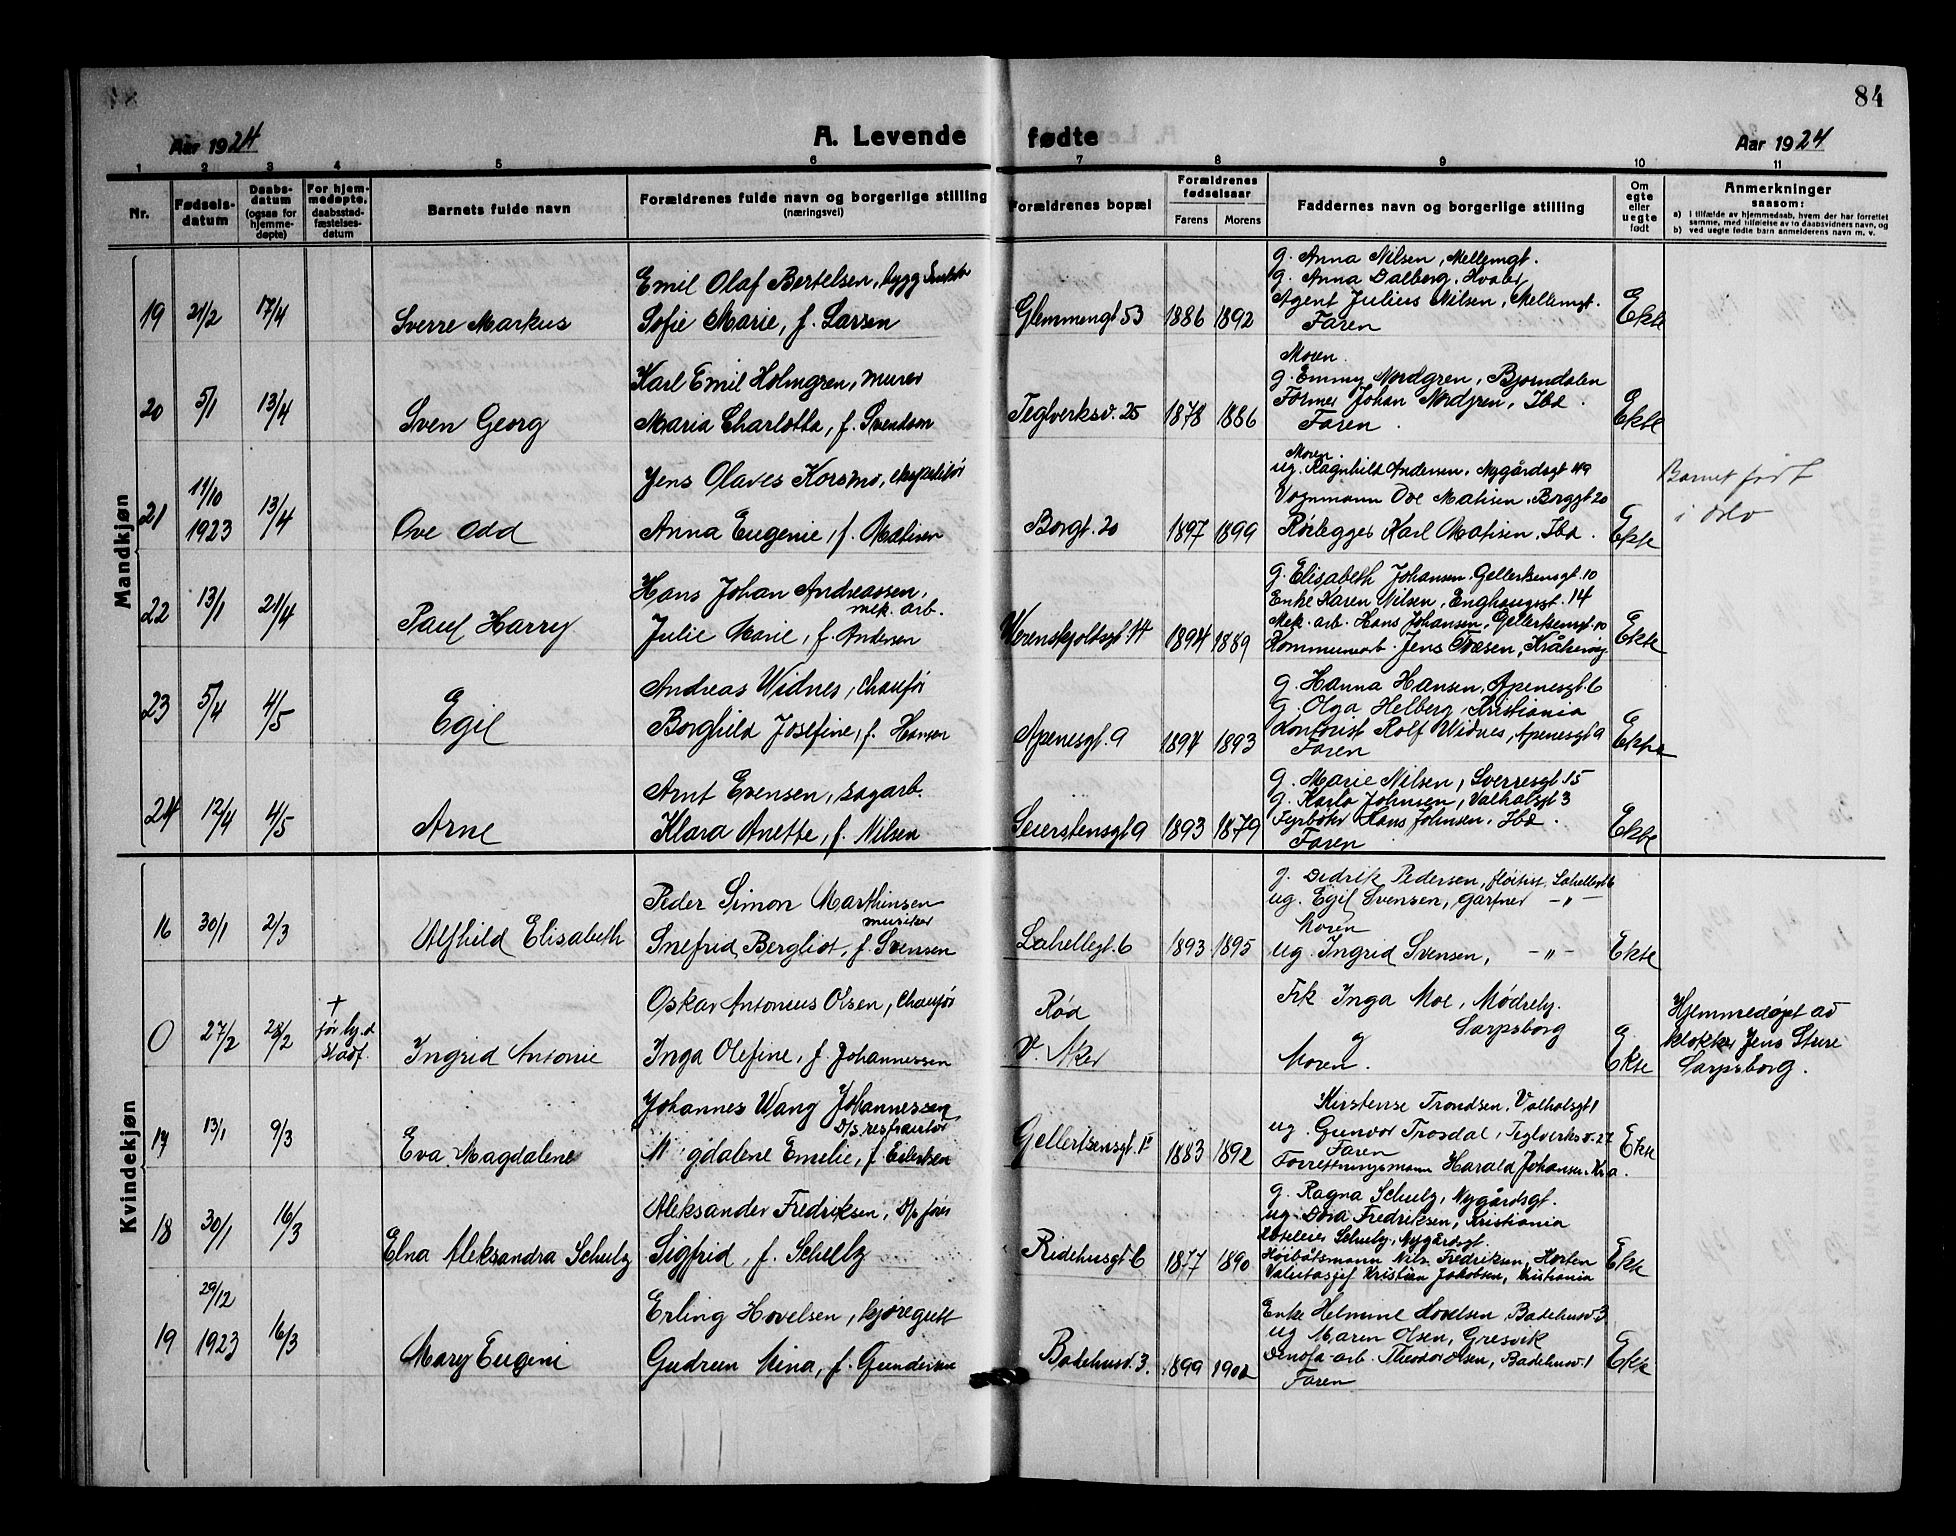 84
Aar 1924
A. Levende fødte
Aar 1924
1 2 3 4 5 6 7 8 9 10 11
Nr.
Fødsels-
datum
Daabs-
datum
(ogsaa for
hjemme-
døpte)
For hjem-
medøpte,
daabsstad-
fæstelses-
datum
Barnets fulde navn
Forældrenes fulde navn og borgerlige stilling
(næringsvei)
Forældrenes bopæl
Forældrenes
fødselsaar
Farens Morens
Faddernes navn og borgerlige stilling
Om
egte
eller
uegte
født
Anmerkninger
saasom:
a) i tilfælde av hjemmedaab, hvem der har forrettet
samme, med tilføielse av to daabsvidners navn, og
b) ved uegte fødte barn anmelderens navn m. v.
Mandkjøn
19 21/2 17/4
Sverre Markus
Emil Olaf Bertelsen, bygg
Sofie Marie, f. Larsen
Glemmengt 53 1886 1892
g. Anna Nilsen, Mellemgt.
g. Anna Dalberg, Hvaler
Agent Julius Nilsen, Mellemgt.
Faren
Ekte
20 5/1 13/4
Sven Georg
Karl Emil Holmgren, murer
Maria Charlotta, f. Svendson
Teglverksv. 25 1878 1886
Moren.
g. Emmy Nordgren, Bjorndalen
Former Johan Nordgren, Ibd.
Faren
Ekte
21 11/10
1923 13/4
Ove Odd
Jens Olaves Korsmo, ekspeditør
Anna Eugenie, f. Matisen
Borgt. 20 1897 1899
Moren.
ug. Ragnhild Andersen, Nygårdsgt 49
Vognmann Ove Matisen, Borggt 20
Rørlegger Karl Matisen, Ibd.
Ekte
Barnet født
i Oslo
22 13/1 21/4
Paul Harry
Hans Johan Andreassen,
mek. arb.
Julie Marie, f. Andersen
Werenskjoldsgt 14 1894 1889
g. Elisabeth Johansen, Gellertsensgt. 10
Enke Karen Nilsen, Enghaugsgt. 14
Mek. arb. Hans Johansen, Gellertsensgt. 10
Kommunearb. Jens
Ekte
23 5/4 4/5
Egil
Andreas Widnes, chauför
Borghild Josefine, f. Hansen
Apenesgt. 9 1894 1893
g. Hanna Hansen, Apenesgt. 6
g. Olga Helberg, Kristiania
Kontorist Rolf Widnes, Apenesgt 9
Faren
Ekte
24 12/4 4/5
Arne
Arnt Evensen, sagarb.
Klara Anette, f. Nilsen
Seierstensgt 9 1893 1879
g. Marie Nilsen, Sverresgt 15
g. Karla Johnsen, Valhalsgt 3
Fyrbøter Hans Johnsen, Ibd.
Faren
Ekte
Kvindekjøn
16 30/1 2/3
Alfhild Elisabeth
Peder Simon Marthinsen
musiker
Snefrid Bergliot, f. Svensen
Lahellegt. 6 1893 1895
g. Didrik Pedersen, fløitist, Lahellegt 6
ug. Egil Svensen, gartner -"-
Moren
ug. Ingrid Svensen, -"-
Ekte
0 27/2 28/2
†
før hj.d
stadf.
Ingrid Antonie
Oskar Antonius Olsen, chauför
Inga Olefine, f. Johannessen
Rød
V. Aker
Frk Inga Moe, Mødreby.
Sarpsborg
g
Moren.
Ekte
Hjemmedøpt av
klokker Jens Sture
Sarpsborg.
17 13/1 9/3
Eva Magdalene
Johannes Wang Johannessen
D/s restauratør
M gdalene Emelie, f. Eilertsen
Gellertsensgt. 1883 1892
Kirstense Trondsen, Valhalsgt 1
ug. Gunvor Trosdal, Teglverksv. 27
Faren
Forretningsmann Harald Johansen, Kr.a.
Ekte
18 30/1 16/3
Elna Aleksandra Schulz
Aleksander Fredriksen, D/s fører
Sigfrid, f. Schulz
Ridehusgt 6 1877 1890
g. Ragna Schulz, Nygårdsgt.
ug. Dora Fredriksen, Kristiania
Schulz, Nygårdsgt.
Høibåtsmann Nils Fredriksen, Horten
Valutasjef Kristian Jakobsen, Kristiania
Ekte
19 29/12
1923 16/3
Mary Eugeni
Erling Hovelsen, kjøregutt
Gudrun Mina, f. Gundersen
Badehusv. 3. 1899 1902
Enke Helmine Hovelsen, Badehusv 3
ug Maren Olsen, Gresvik
Denofa-arb. Theodor Olsen, Badehusv. 1
Faren
Ekte